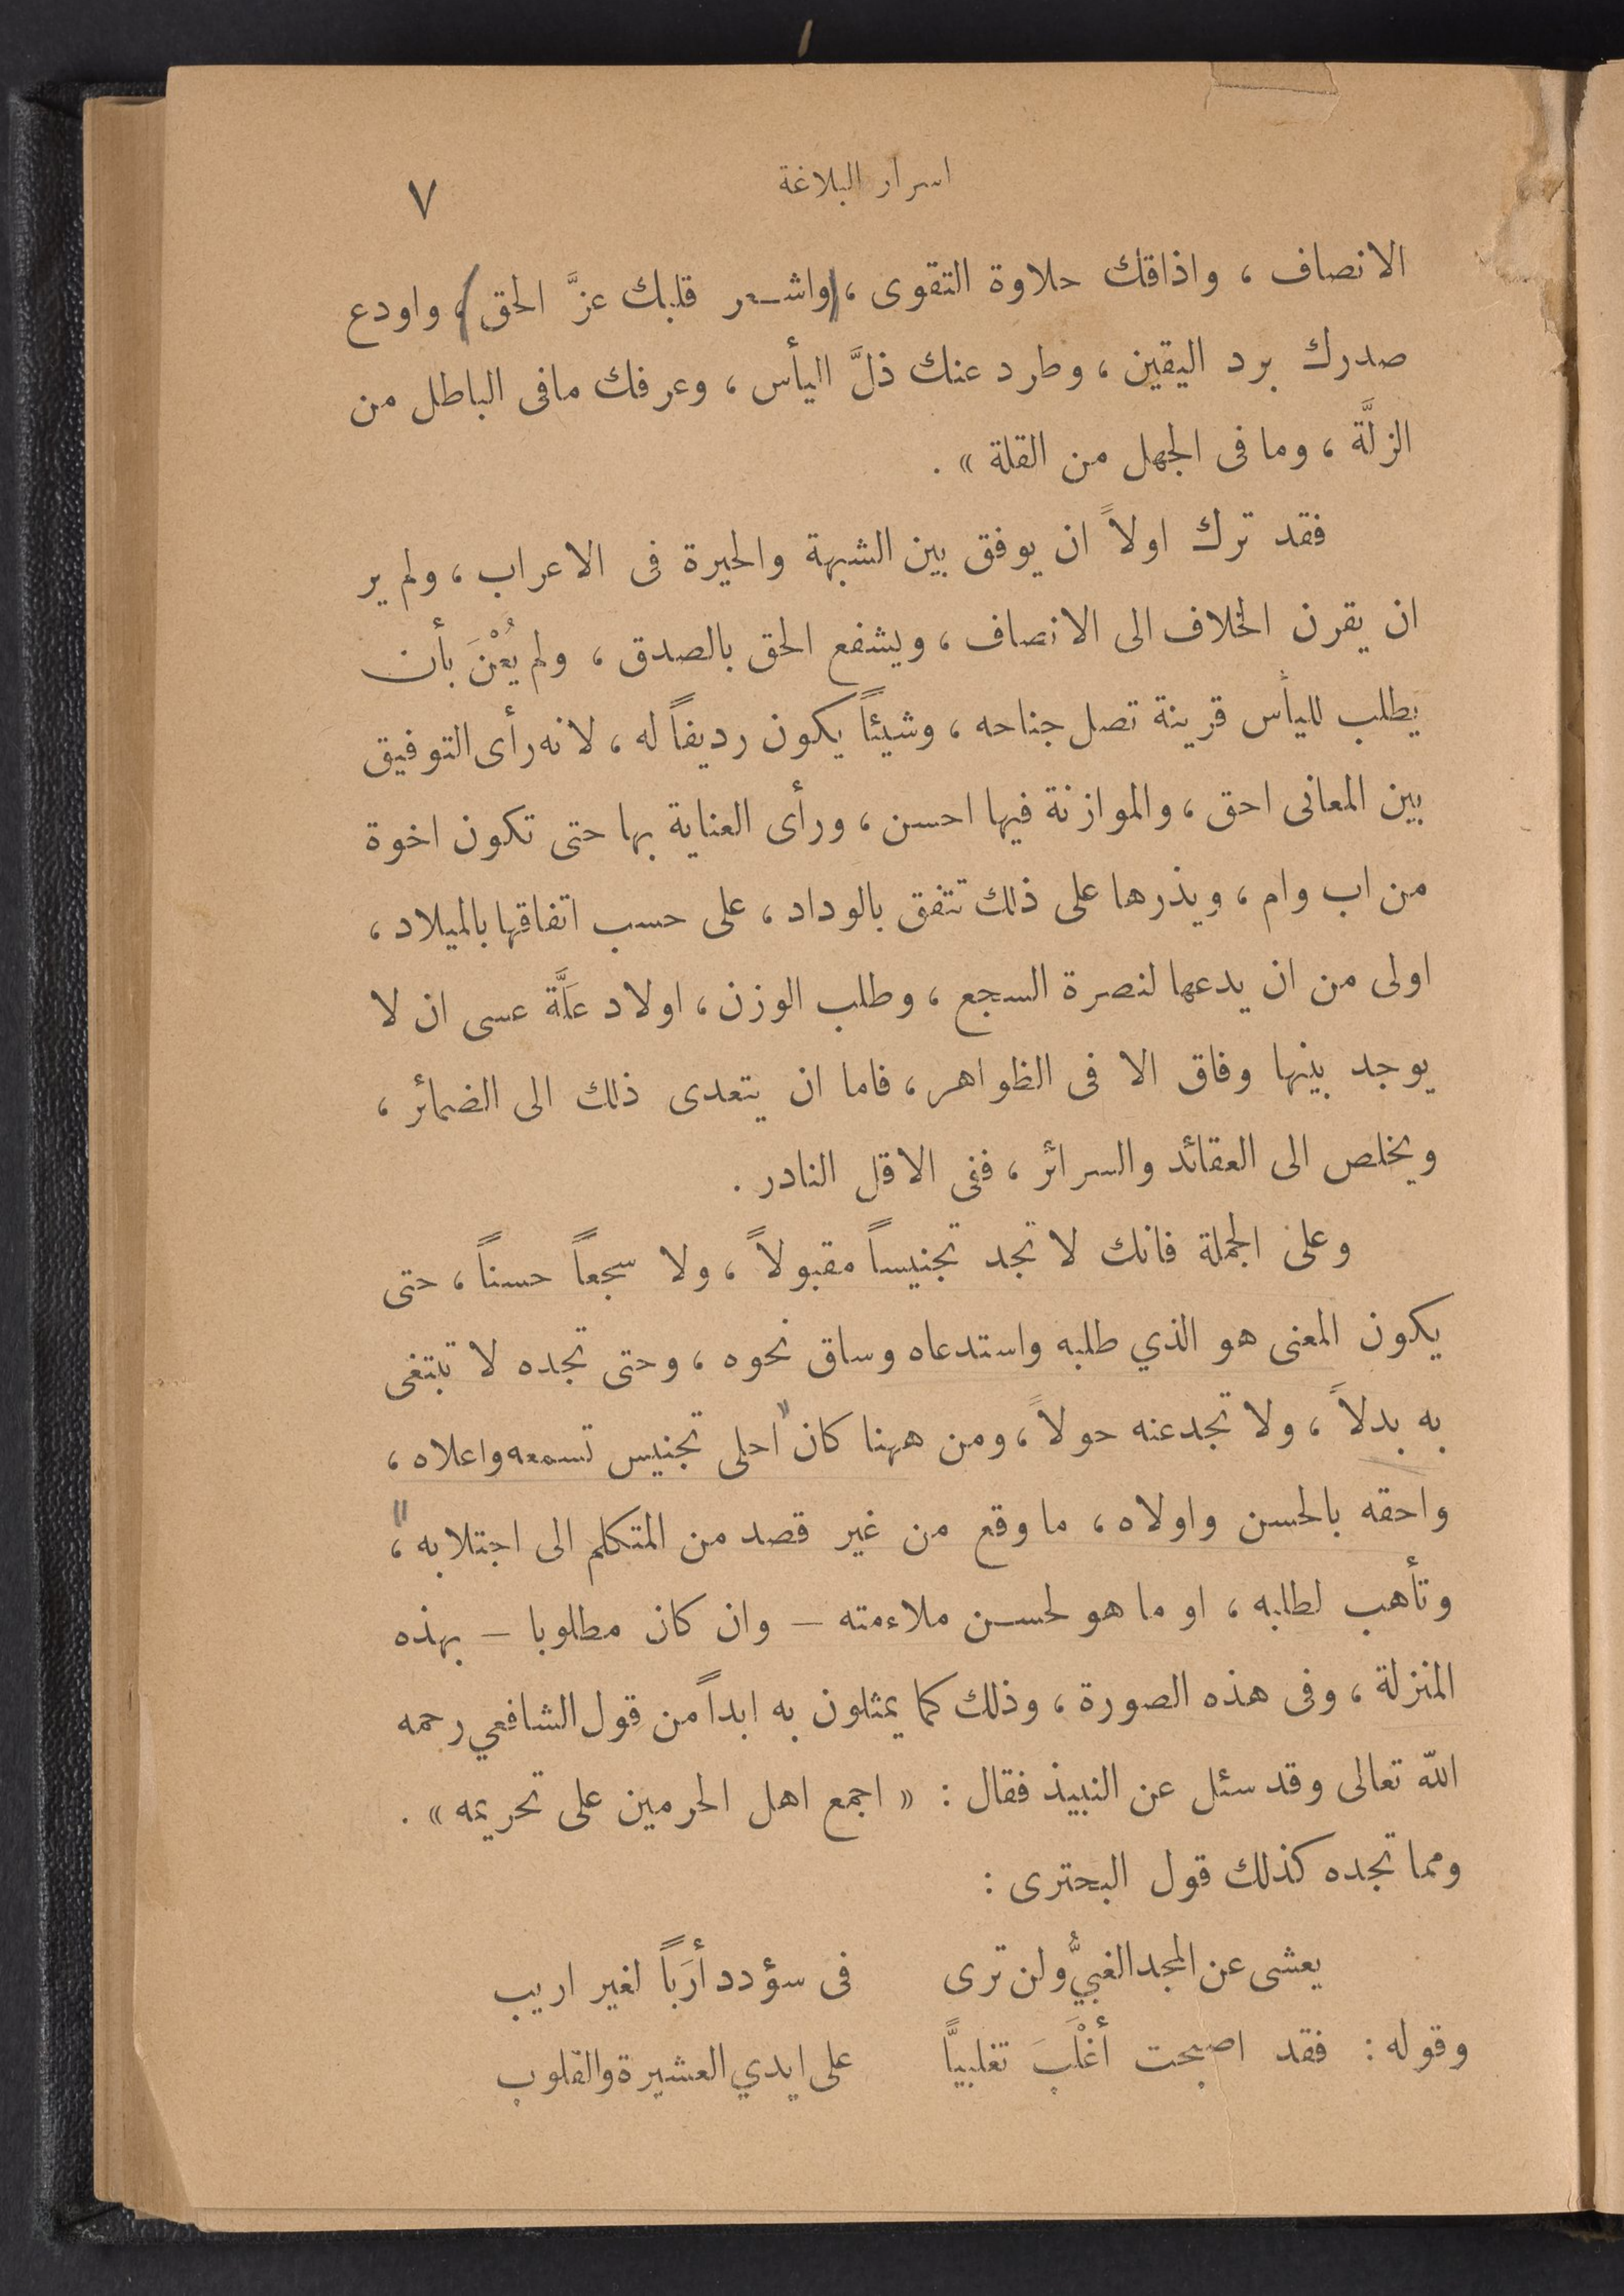 اسرار البلاغة
٧
الانصاف ، واذاقك حلاوة التقوى ، واشعر قلبك عزَّ الحق ، واودع
صدرك برد اليقين ، وطرد عنك ذلَّ اليأس ، وعرفك مافى الباطل من
الزلَّة ، وما فى الجهل من القلة » .
فقد ترك اولاً ان يوفق بين الشبهة والحيرة فى الاعراب ، ولم ير
ان يقرن الخلاف الى الانصاف ، ويشفع الحق بالصدق ، ولم يُعْنَ بأن
يطلب لليأس قرينة تصل جناحه ، وشيئاً يكون رديفاً له ، لانه رأى التوفيق
بين المعانى احق ، والموازنة فيها احسن ، ورأى العناية بها حتى تكون اخوة
من اب وام ، ويذرها على ذلك تتفق بالوداد ، على حسب اتفاقها بالميلاد ،
اولى من ان يدعها لنصرة السجع ، وطلب الوزن ، اولاد علَّة عسى ان لا
يوجد بينها وفاق الا فى الظواهر ، فاما ان يتعدى ذلك الى الضمائر ،
ويخلص الى العقائد والسرائر ، ففى الاقل النادر .
وعلى الجملة فانك لا تجد تجنيساً مقبولاً ، ولا سجعاً حسناً ، حتى
يكون المعنى هو الذي طلبه واستدعاه وساق نحوه ، وحتى تجده لا تبتغى
به بدلاً ، ولا تجد عنه حولاً ، ومن ههنا كان "احلى تجنيس تسمعه واعلاه ،
واحقه بالحسن واولاه ، ما وقع من غير قصد من المتكلم الى اجتلابه ،"
وتأهب لطلبه ، او ما هو لحسن ملاءمته — وان كان مطلوبا — بهذه
المنزلة ، وفى هذه الصورة ، وذلك كما يمثلون به ابداً من قول الشافعي رحمه
الله تعالى وقد سئل عن النبيذ فقال : « اجمع اهل الحرمين على تحريمه » .
ومما تجده كذلك قول البحترى :
يعشى عن المجد الغبيُّ ولن ترى فى سؤدد أرَباً لغير اريب
وقوله : فقد اصبحت أغْلَبَ تغلبيًّا على ايدي العشيرة والقلوب